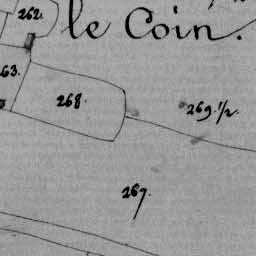 262.
le Coin.
263.
268.
269.1/2.
267.